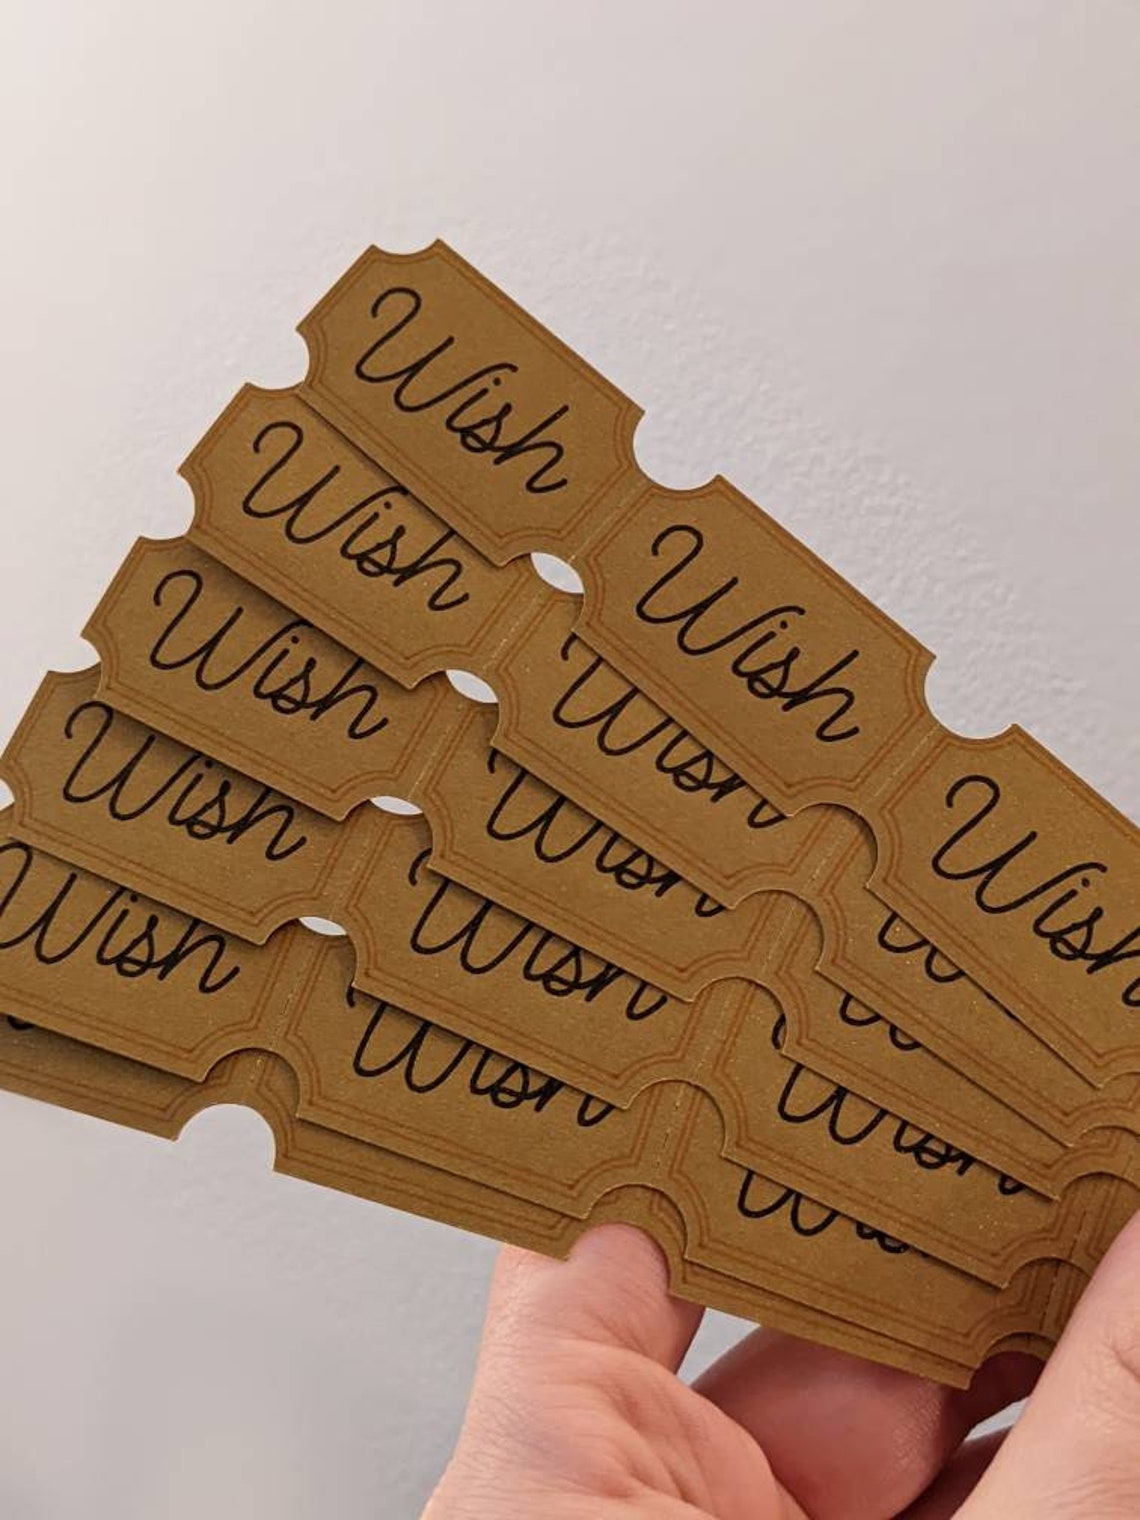 Wish
Wish
Wish
Wish
Wish
Wish
Wish
Wish
Wish
Wish
Wish
Wish
Wish